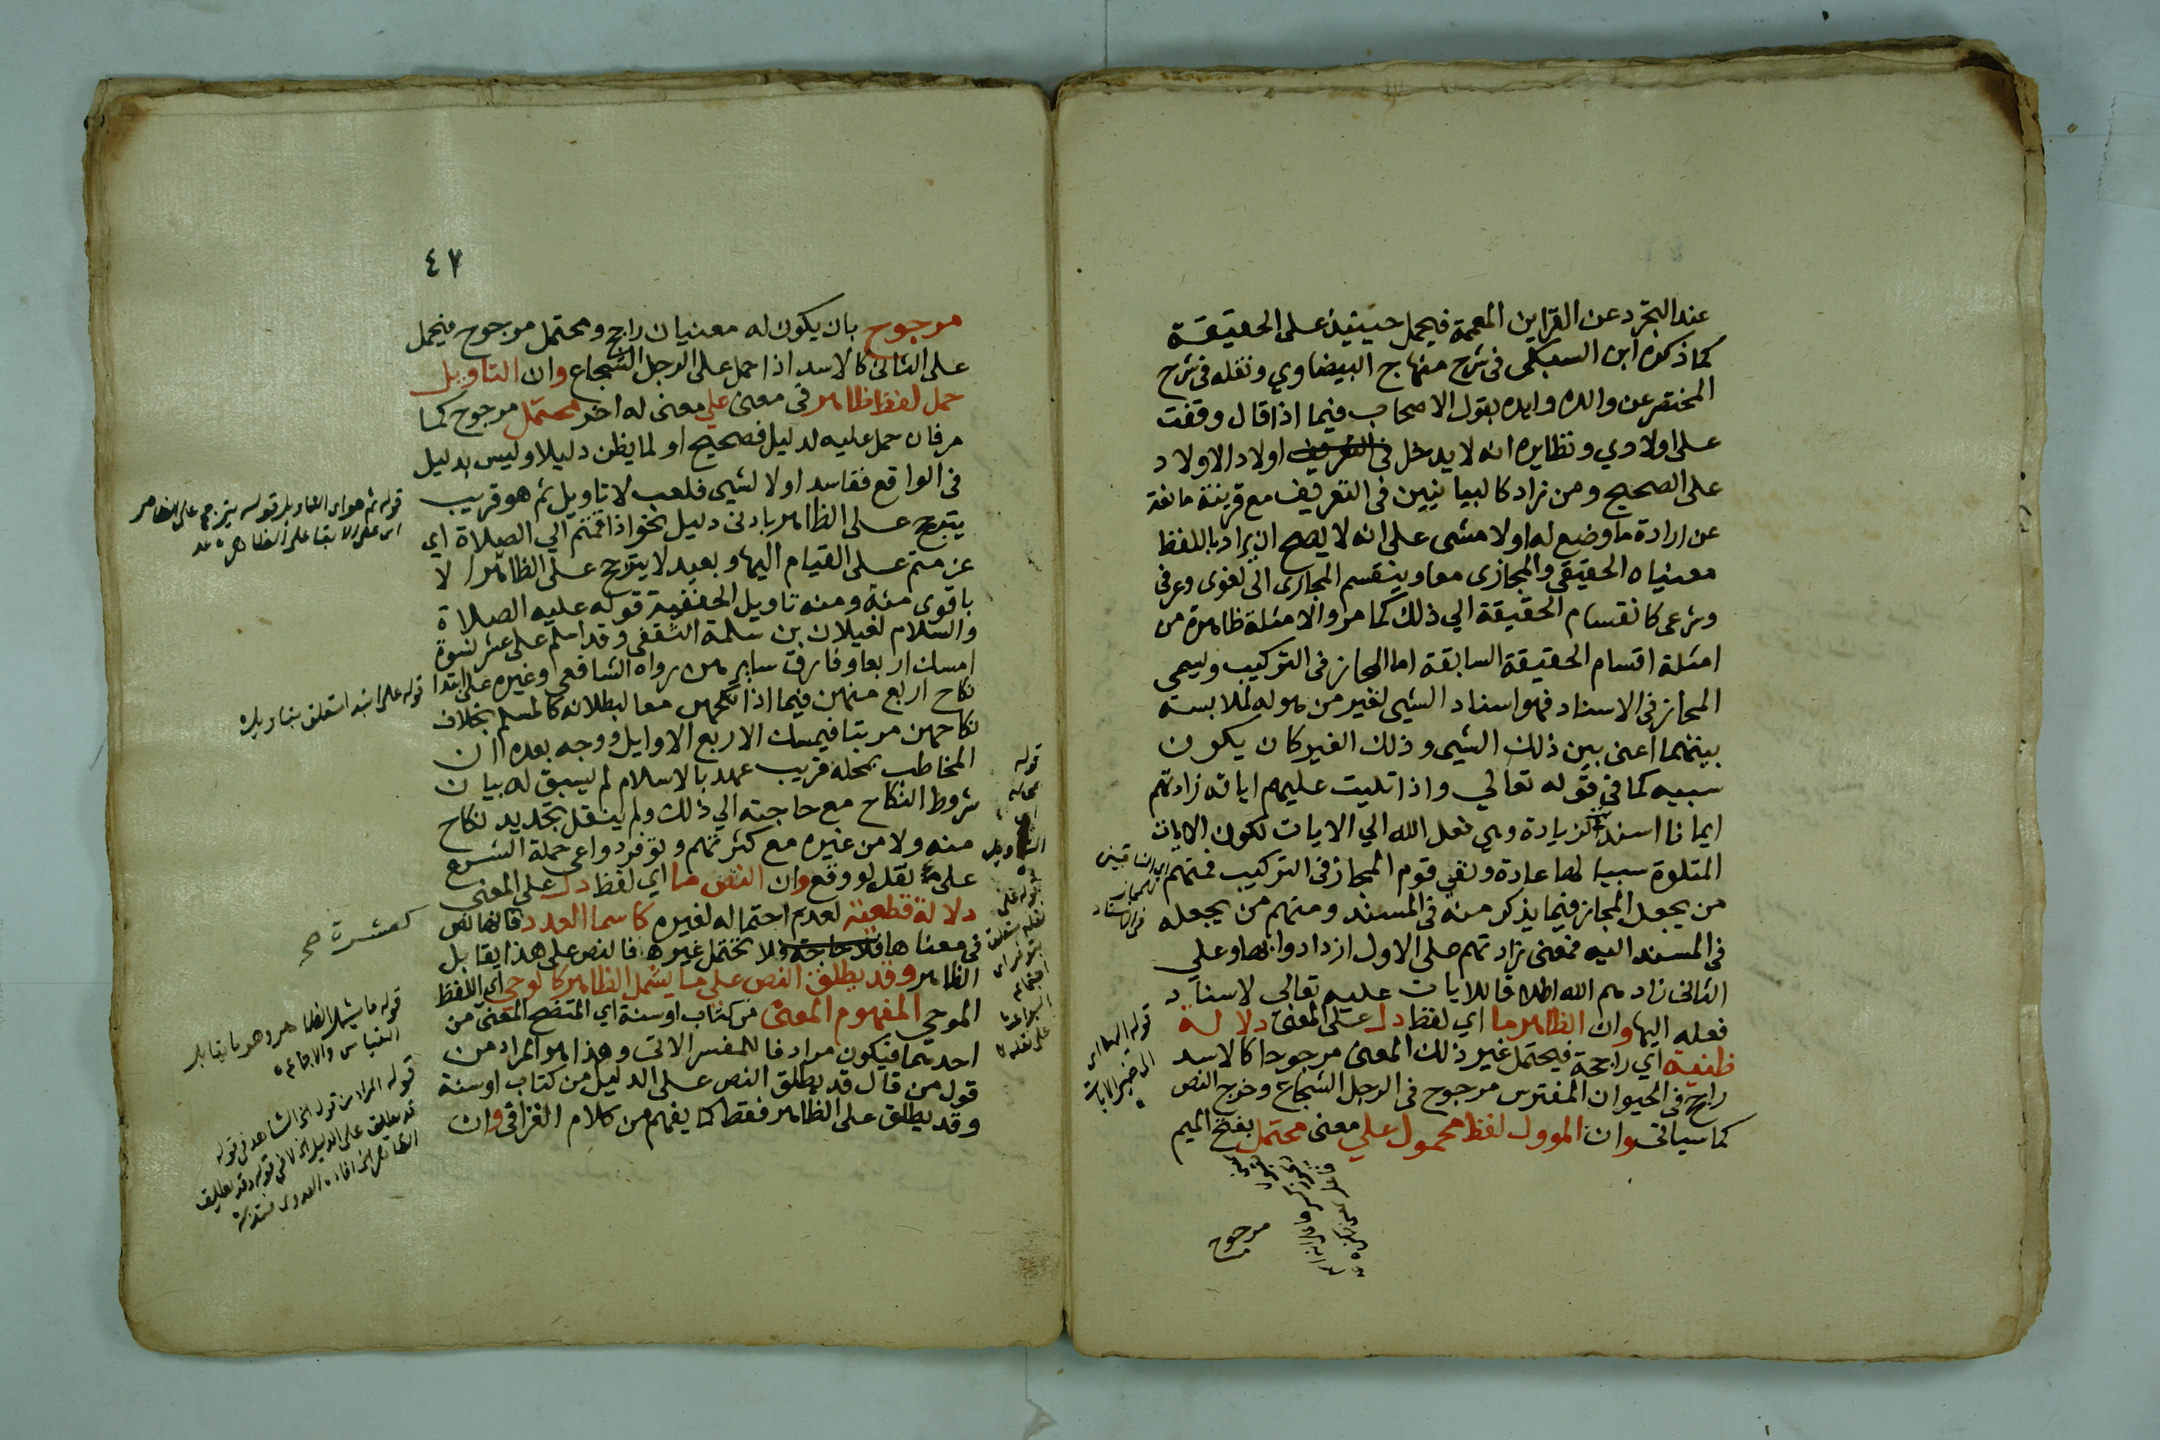 عند التجرد عن القراين المعممة فيحمل حينيذ على الحقيقة
كما ذكره ابن السبكي في شرح منهاج البيضاوي ونقله في شرح
المختصر عن والده وايده بقول الاصحاب فيما اذا قال وقفت
على اولادي ونظايره انه لا يدخل في اولاد الاولاد
على الصحيح ومن زاد كالبيانيين في التعريف مع قرينة مانعة
عن ارادة ما وضع له اولا مشى على انه لا يصح ان يراد باللفظ
معنياه الحقيقي والمجازي معا وينقسم المجازى الى لغوى وعرفي
وشرعى كانقسام الحقيقة الي ذلك كما مر والامثلة ظاهرة من
امثلة اقسام الحقيقة السابقة اما المجاز في التركيب ويسمى
المجاز في الاسناد فهو اسناد الشيى لغير من هو له لملابسة
بينهما اعنى بين ذلك الشيى وذلك الغير كان يكون
سببه كما في قوله تعالي واذا تليت عليهم اياته زادتهم
ايمانا اسند الزيادة وهي فعل الله الي الايات لكون الايات
المتلوة سببا لها عادة ونفى قوم المجاز في التركيب فمنهم
من يجعل المجاز فيما يذكر منه في المسند ومنهم من يجعله
في المسند اليه فمعنى زادتهم على الاول ازدادوا بها وعلي
الثانى زادهم الله اطلاقا للايات عليه تعالى لاسناد
فعله اليها وان الظاهر ما اي لفظ دل على المعنى دلالة
ظنية اي راجحة فيحتمل غير ذلك المعنى مرجوحا كالاسد
راجح في الحيوان المفترس مرجوح في الرجل الشجاع وخرج النص
كما سياتى وان الموول لفظ محمول علي معنى محتمل بفتح الميم
مرجوح
قوله اليها اى
٤٧
مرجوح بان يكون له معنيان راجح ومحتمل مرجوح فيحمل
على الثانى كالاسد اذا حمل على الرجل الشجاع وان التاويل
حمل لفظ ظاهر في معنى علي معنى له اخر محتمل مرجوح كما
مر فان حمل عليه لدليل فصحيح او لما يظن دليلا وليس بدليل
في الواقع ففاسد اولا لشيى فلعب لا تاويل ثم هو قريب
يترجح على الظاهر بادنى دليل نحو اذا قمتم الي الصلاة اي
عزمتم على القيام اليها وبعيد لا يترجح على الظاهر الا
باقوى منه ومنه تاويل الحنفية قوله عليه الصلاة
والسلام لغيلان بن سلمة الثقفى وقد اسلم على عشر نسوة
امسك اربعا وفارق سايرهن رواه الشافعي وغيره على ابتدا
نكاح اربع منهن فيما اذا نكحهن معا لبطلانه كالمسلم بخلاف
نكاحهن مرتبا فيمسك الاربع الاوايل ووجه بعده ان
المخاطب بمحله قريب عهد بالاسلام لم يسبق له بيان
شروط النكاح مع حاجته الي ذلك ولم ينقل تجديد نكاح
منه ولا من غيره مع كثرتهم وتوفر دواعي حملة الشرع
على نقله لو وقع وان النص ما اي لفظ دل على المعنى
دلالة قطعية لعدم احتماله لغيره كاسما العدد فانها نص
في معناها فلا تحتمل غيرها فالنص على هذا يقابل
الظاهر وقد يطلق النص على ما يشمل الظاهر كالوحي اي اللفظ
الموحي المفهوم المعنى من كتاب او سنة اي المتضح المعنى من
احدهما فيكون مرادفا للمفسر الاتى وهذا هو المراد من
قول من قال قد يطلق النص على الدليل من كتاب او سنة
وقد يطلق على الظاهر فقط كما يفهم من كلام الغزالي وان
قوله ثم هو اى التاويل قوله يترجح على الظاهر
اى على الابقا على الظاهر
قوله على ابتدا متعلق بتاويل
كعشرة صح
قوله ما يشمل الظاهر وهو ما يقابل
القياس والاجماع